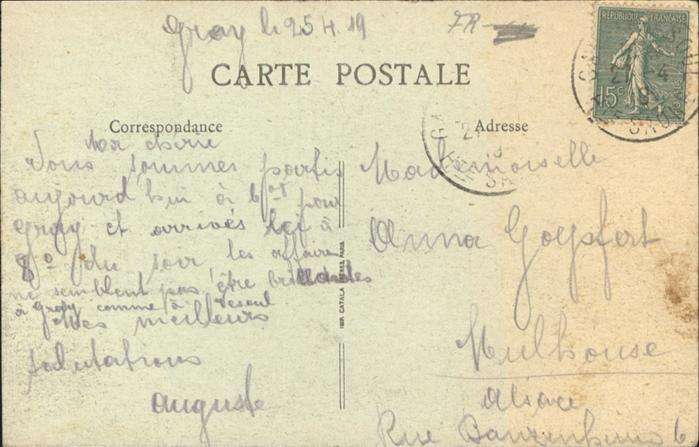 Gray le 25 4 19
CARTE POSTALE
Correspondance
Ma chère
Nous sommes partis
aujourd hui à pour
Gray et arrivés ici à
8° du soir les affaires
ne semblent pas être brillantes
à Gray comme à Vesoul
Mes meilleurs
salutations
auguste
Adresse
Mademoiselle
Anna
Mulhouse
Alsace
Rue 6
REPUBLIQUE FRANÇAISE
15c